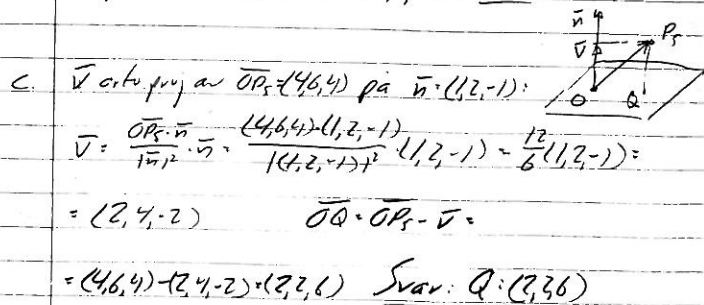 n̄
v̄ P₅
O Q
c. v̄ orto proj av O̅P̅₅=(4,6,4) på n̄=(1,2,-1):
v̄ = (O̅P̅₅·n̄)/|n̄|² · n̄ = ((4,6,4)·(1,2,-1))/|(1,2,-1)|² · (1,2,-1) = 12/6 (1,2,-1) =
= (2,4,-2) O̅Q̅ = O̅P̅₅ - v̄ =
= (4,6,4)-(2,4,-2)=(2,2,6) Svar: Q:(2,2,6)